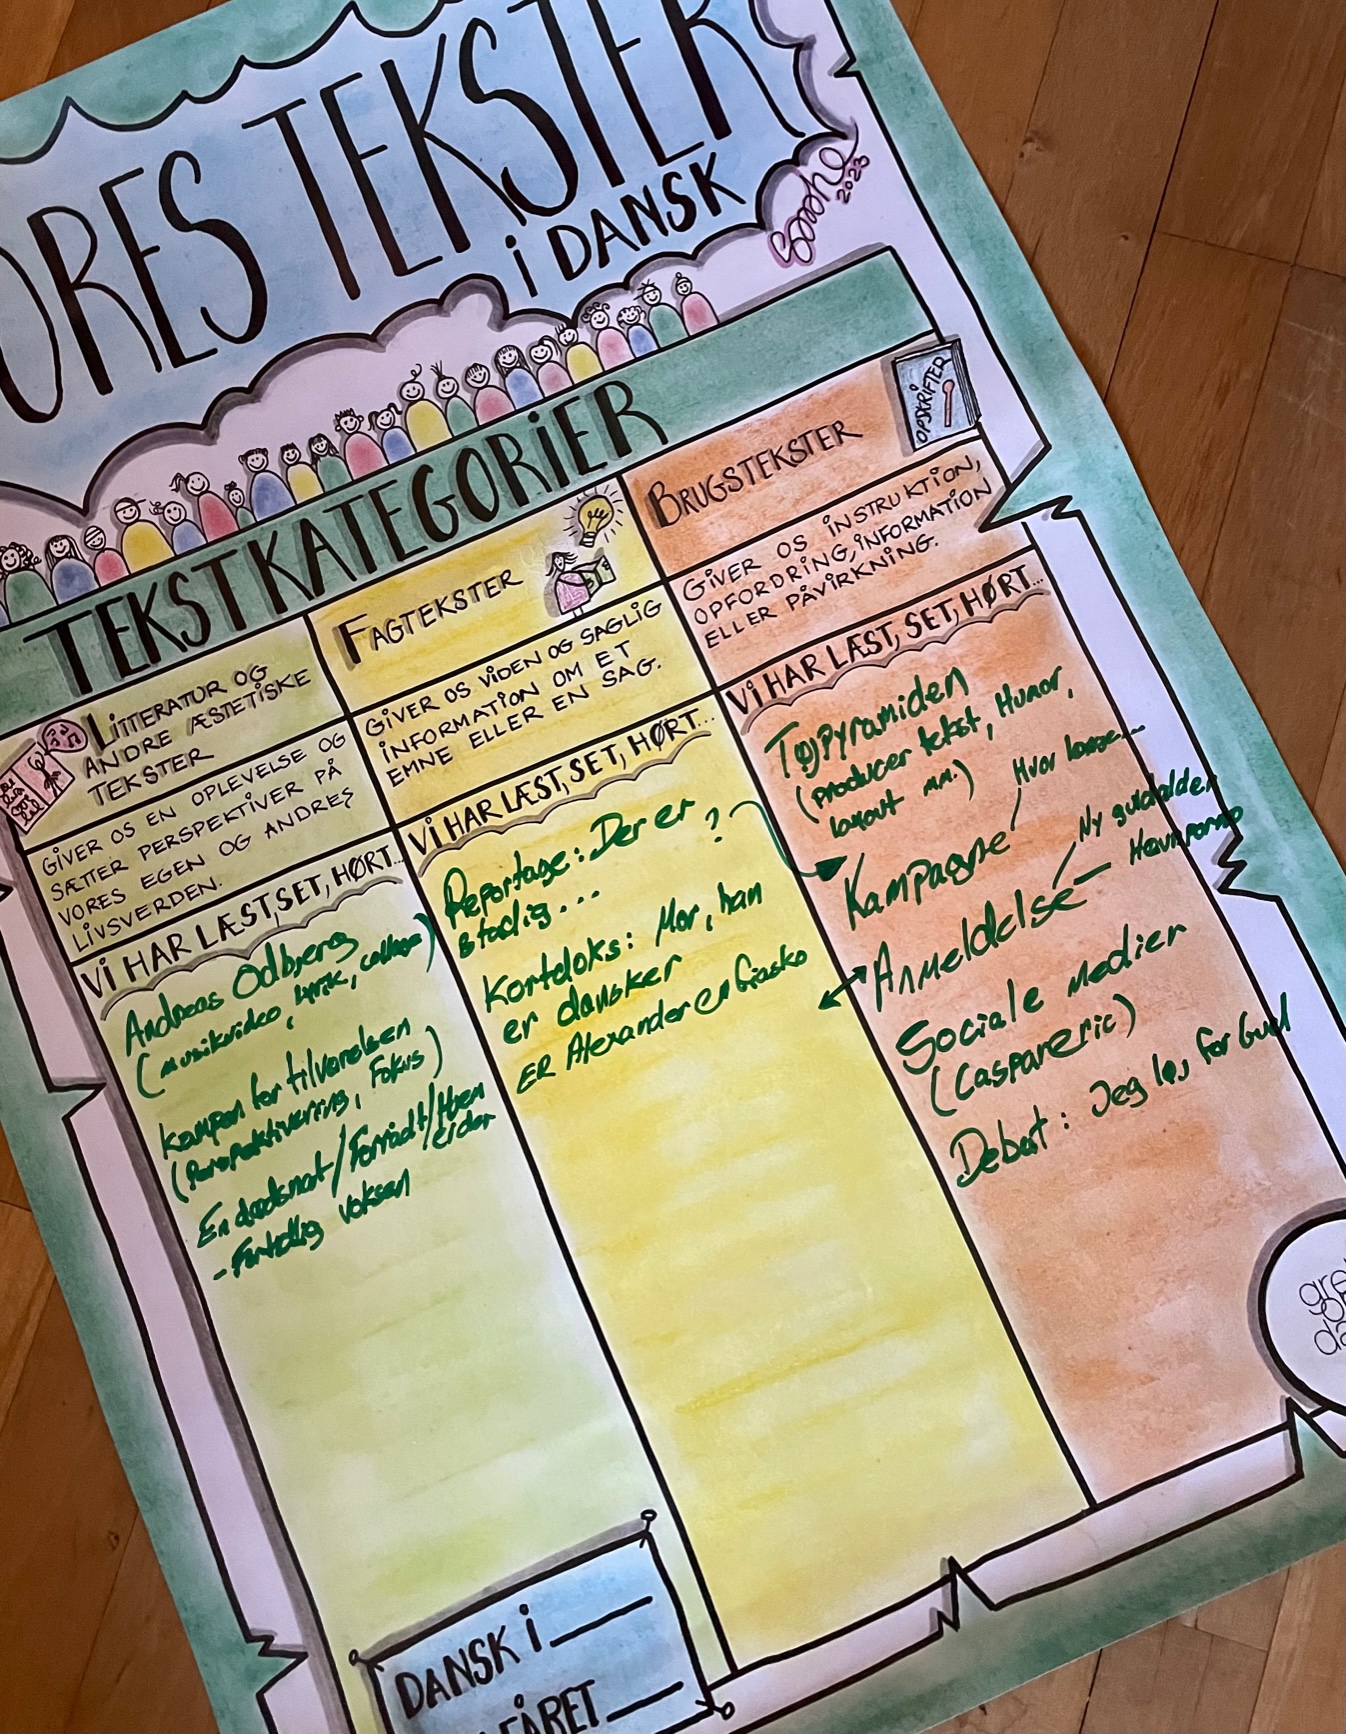 ORES TEKSTER
i DANSK
Sophie
2023
TEKSTKATEGORiER
LiTTERATUR OG
ANDRE ÆSTETISKE
TEKSTER
GiVER OS EN OPLEVELSE OG
SÆTTER PERSPEKTiVER PÅ
VORES EGEN OG ANDRES
LiVSVERDEN.
Vi HAR LÆST, SET, HØRT...
Andreas Odbjerg
(musikvideo, lyrik, collage)
Kampen for tilværelsen
(Perspektivering, Fokus)
En dødsnat/Forrådt/Hven
er der
- Fortællig voksen
FAGTEKSTER
GiVER OS ViDEN OG SAGLiG
iNFORMATiON OM ET
EMNE ELLER EN SAG.
Vi HAR LÆST, SET, HØRT...
Reportage: Der er ?
stadig...
Kortdoks: Mor, han
er dansker
ER Alexander en fiasko
BRUGSTEKSTER
OPSKRiFTER
GiVER OS iNSTRUKTiON,
OPFORDRiNG, iNFORMATiON
ELLER PÅViRKNiNG.
Vi HAR LÆST, SET, HØRT...
Tøjpyramiden
(producer tekst, Humor,
layout mm.)
Hvor længe...
Kampagne
Ny guldalder
Anmeldelse
Sociale medier
(Caspareric)
Debat: Jeg løj for Gud
DANSK i
ÅRET